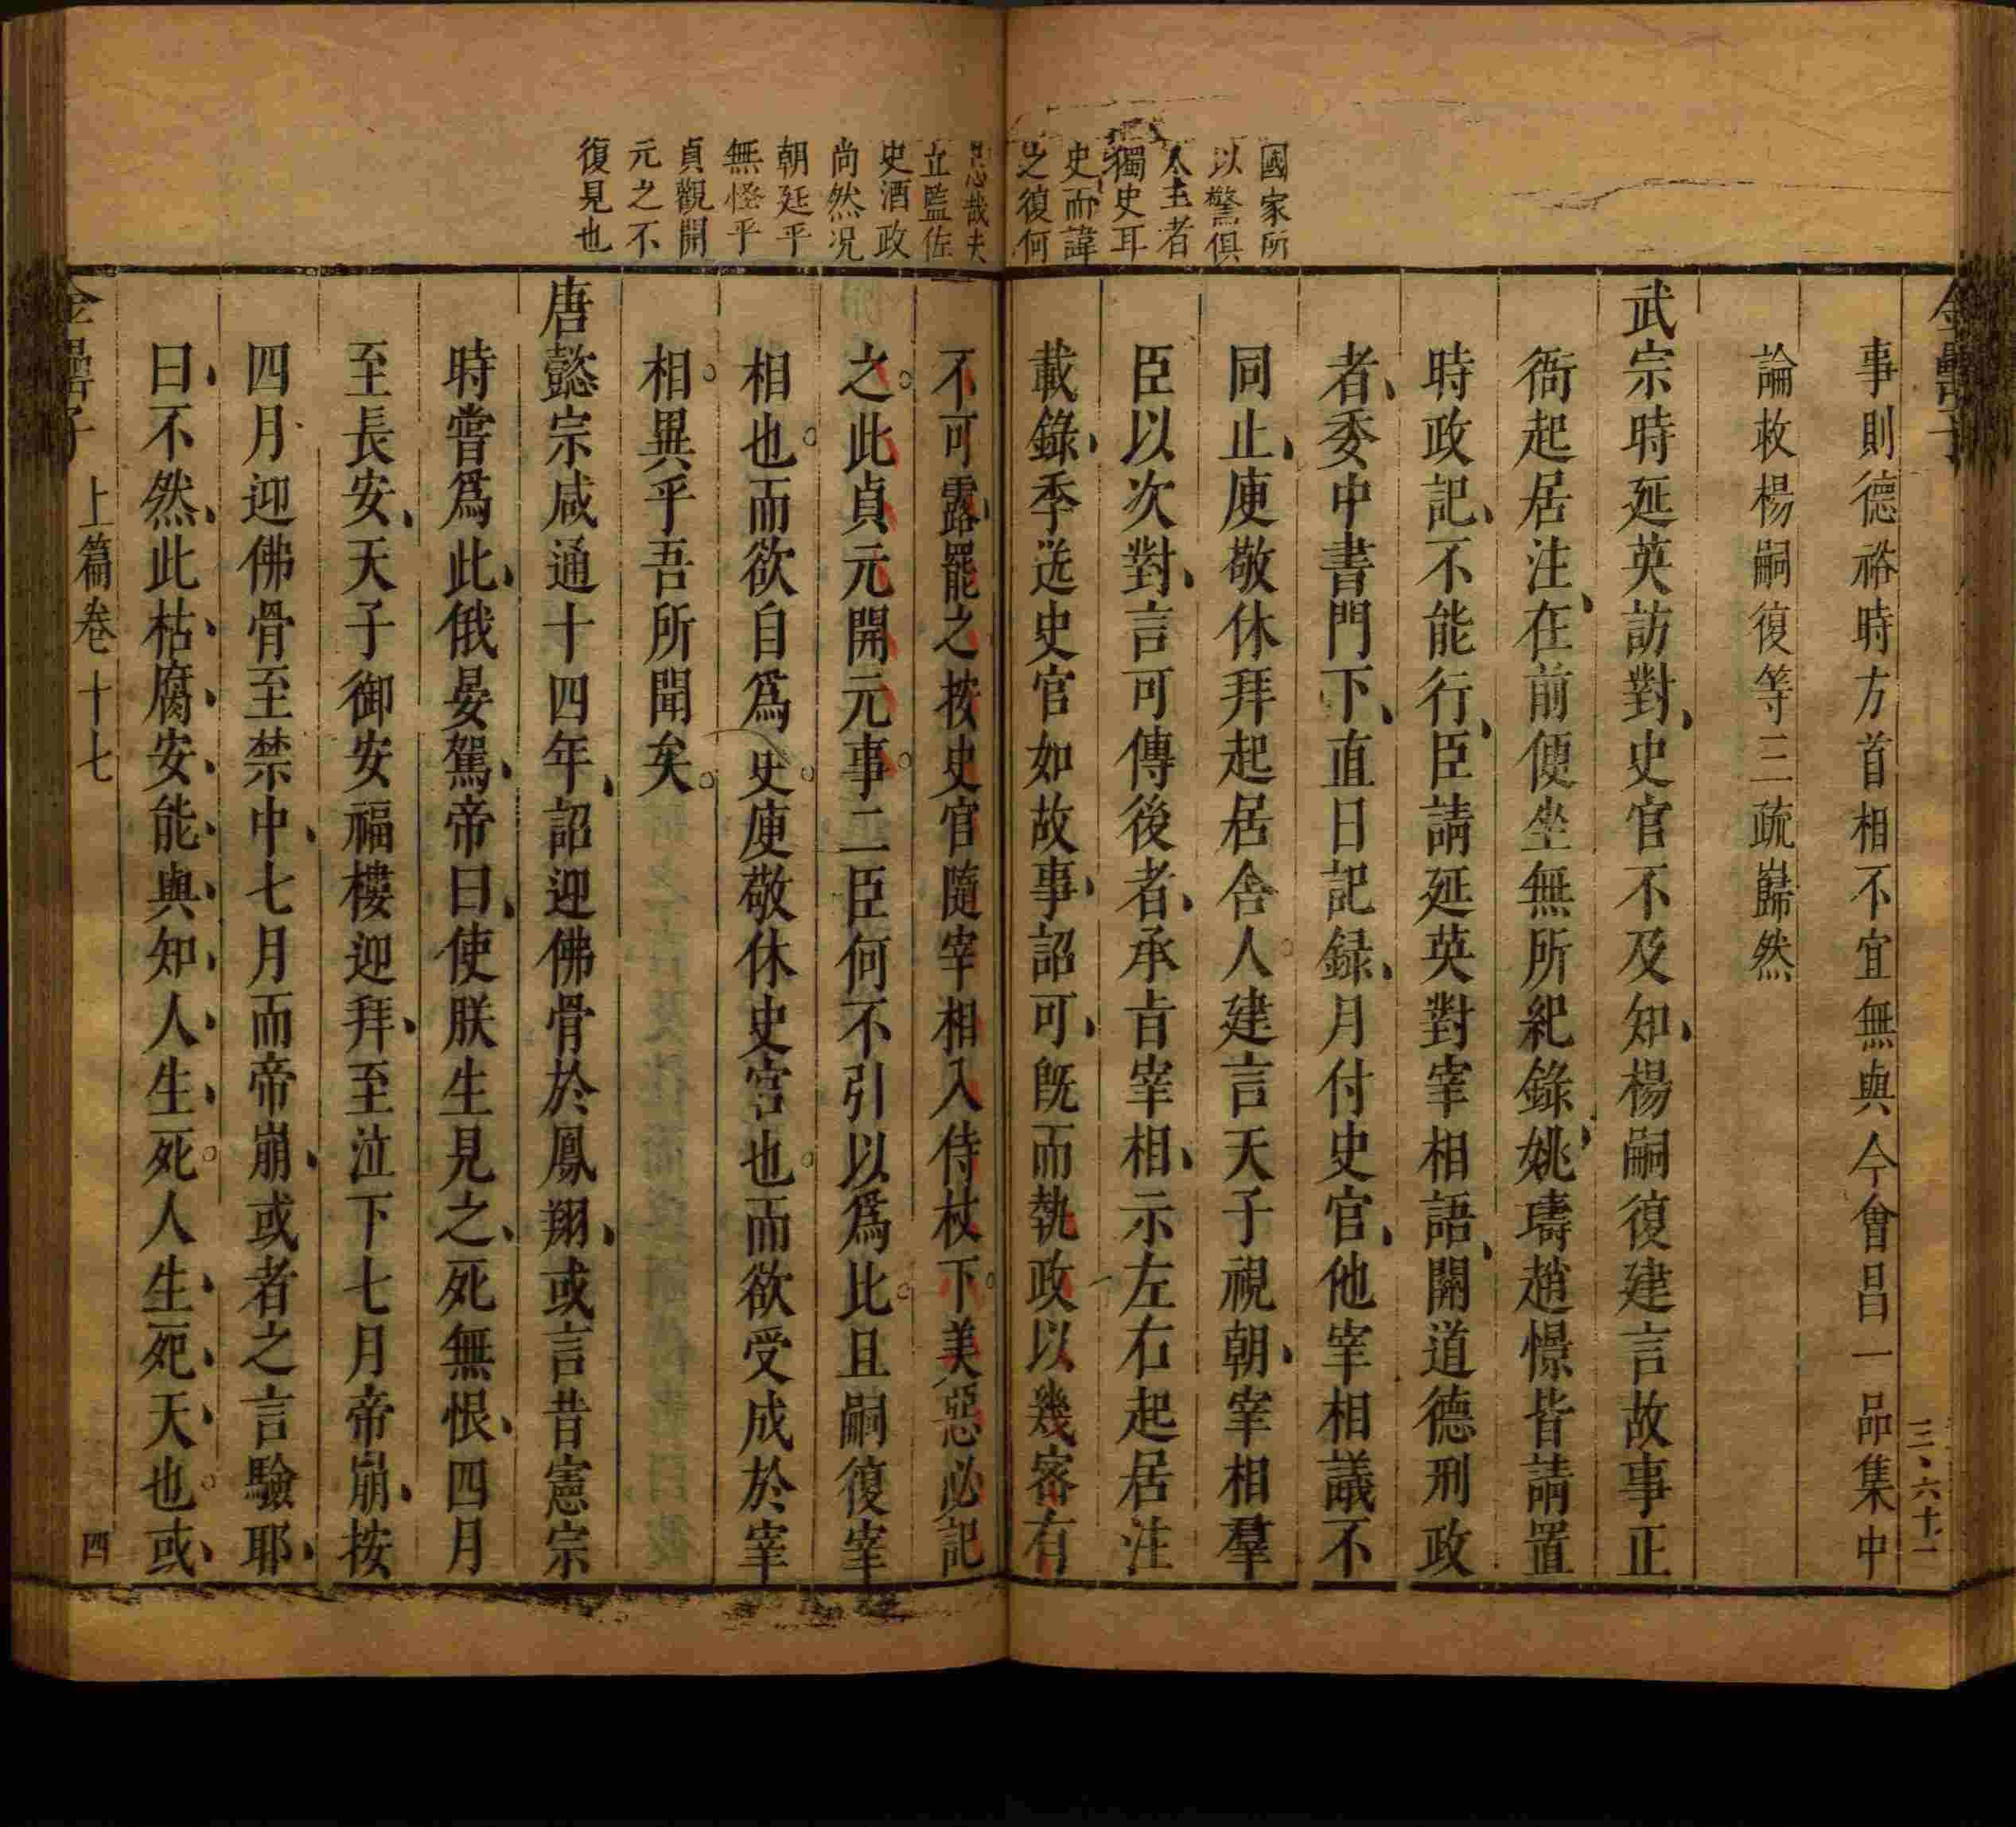 國家所
以警俱
人主者
獨史耳
史而諱
之復何
忌哉夫
立監佐
史酒政
尚然况
朝廷乎
無怪乎
貞觀開
元之不
復見也
三六十二
事則德裕時方首相不宜無與今會昌一品集中
論救楊嗣復等三疏巋然
武宗時延英訪對史官不及知楊嗣復建言故事正
衙起居注在前便坐無所紀錄姚璹趙憬皆請置
時政記不能行臣請延英對宰相語關道德刑政
者委中書門下直日記録月付史官他宰相議不
同止庾敬休拜起居舍人建言天子視朝宰相羣
臣以次對言可傳後者承旨宰相示左右起居注
載錄季送史官如故事詔可旣而執政以幾密有
不可露罷之按史官隨宰相入侍杖下美惡必記
之此貞元開元事二臣何不引以爲比且嗣復宰
相也而欲自爲史庾敬休史官也而欲受成於宰
相異乎吾所聞矣
唐懿宗咸通十四年詔迎佛骨於鳳翔或言昔憲宗
時嘗爲此俄晏駕帝曰使朕生見之死無恨四月
至長安天子御安福樓迎拜至泣下七月帝崩按
四月迎佛骨至禁中七月而帝崩或者之言驗耶
曰不然此枯腐安能與知人生死人生死天也或
金罍子 上篇卷十七 四